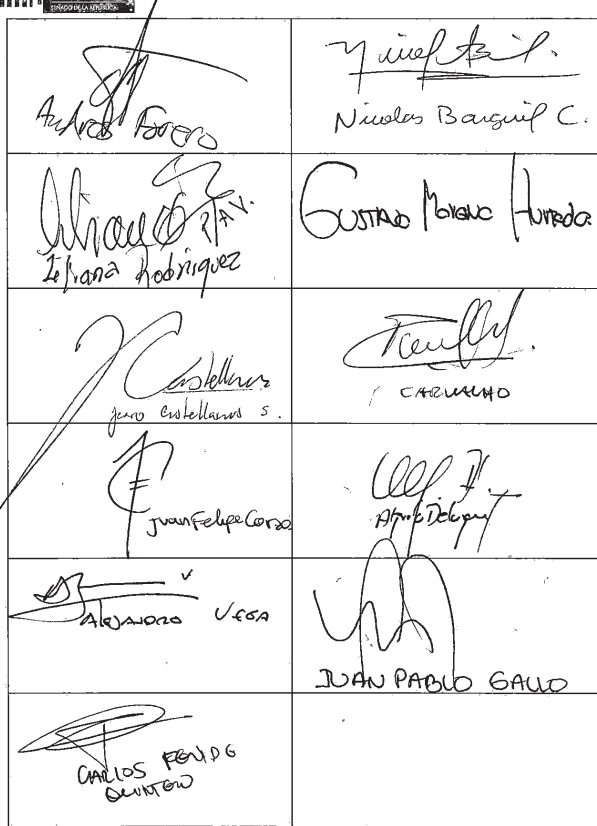 SENADO DE LA REPUBLICA
Andrés Forero
Nicolas Barguil C.
Iliana Rodriguez
GUSTAVO MORENO HURTADO
Castellanos
Jairo Castellanos S.
CARVALHO
Juan Felipe Corzo
Alfredo Deluque
ALEJANDRO VEGA
JUAN PABLO GALLO
CARLOS FELIPE
QUINTERO